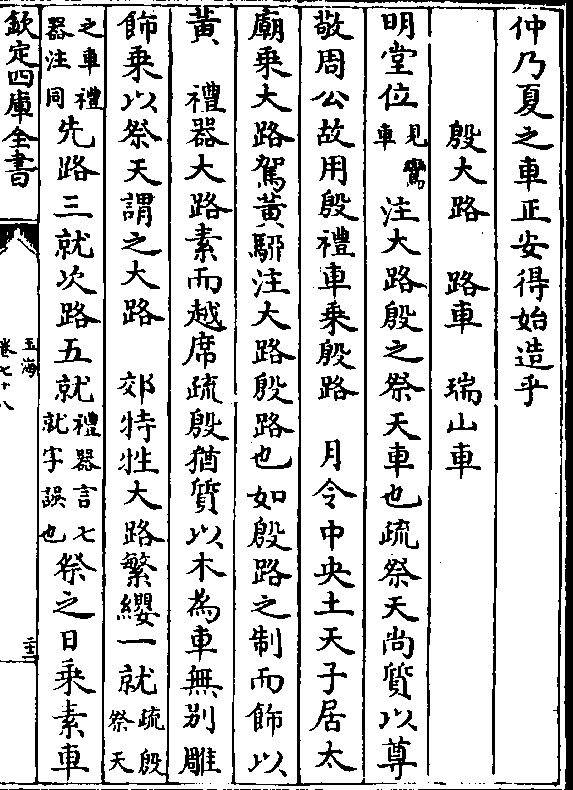 仲乃夏之車正安得始造乎
殷大路　路車　瑞山車
明堂位見鸞車注大路殷之祭天車也疏祭天尚質以尊
敬周公故用殷禮車乗殷路　月令中央土天子居太
廟乗大路駕黄駵注大路殷路也如殷路之制而飾以
黄　禮器大路素而越席疏殷猶質以木為車無别雕
飾乗以祭天謂之大路　郊特牲大路繁纓一就疏殷祭天
之車禮器注同先路三就次路五就禮器言七就字誤也祭之日乗素車
欽定四庫全書
玉海
卷七十八
二十三